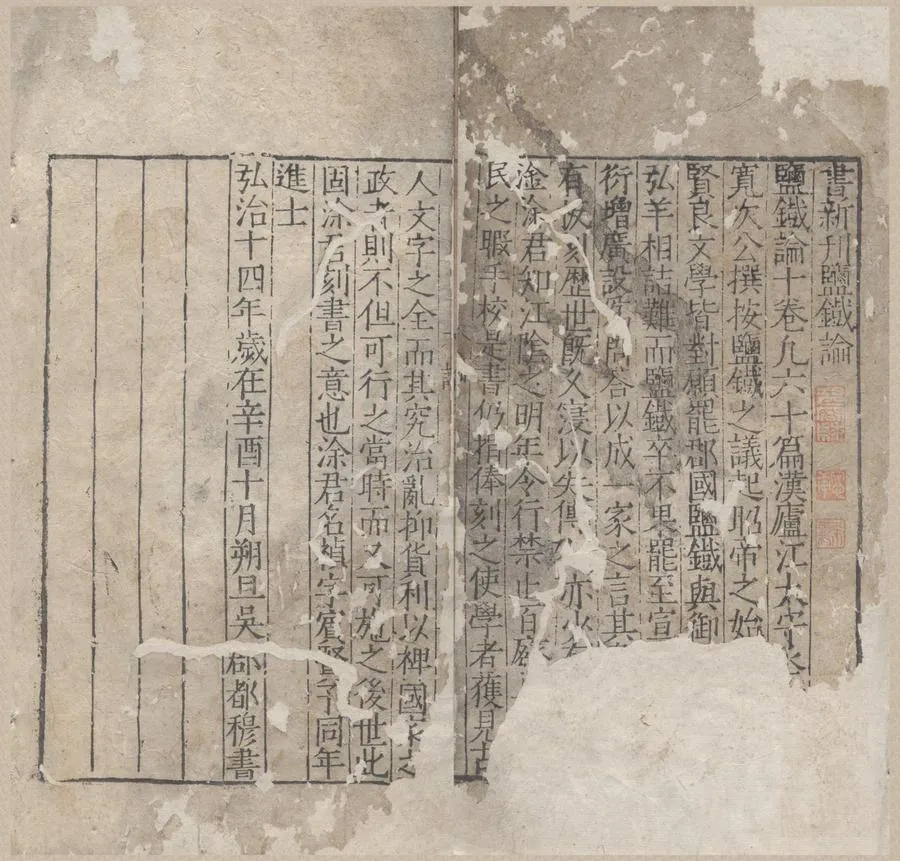 書新刊鹽鐵論
鹽鐵論十卷凡六十篇漢廬江太守丞
寬次公撰按鹽鐵之議起昭帝之始
賢良文學皆對願罷郡國鹽鐵與御
弘羊相詰難而鹽鐵卒不果罷至宣
衍增廣設為問答以成一家之言其
有板刻歷世既久寖以失傳
淦涂君知江陰之明年令行禁止百廢
民之暇手校是書仍捐俸刻之使學者獲見古
人文字之全而其究治亂抑貨利以裨國家之
政者則不但可行之當時而又可施之後世此
固涂君刻書之意也涂君名禎字賓賢予同年
進士
弘治十四年歲在辛酉十月朔旦吳郡都穆書